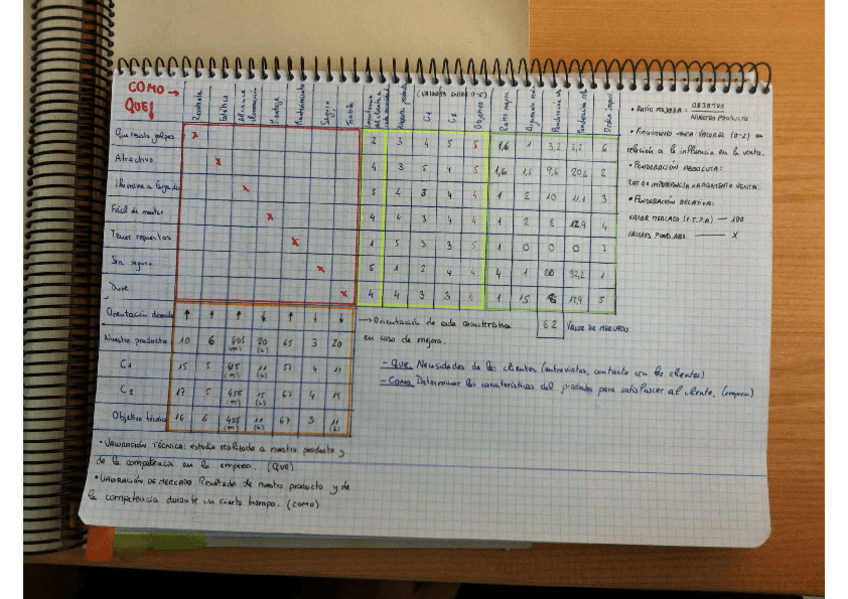 COMO →
QUE↓
Resistente
Estético
Alcance iluminación
Montaje
Mantenimiento
Seguro
(VALORES ENTRE 0-5)
C1
C2
Objetivo
Ratio mejora
Argumento
Ponderación
Ponderación
Que resista golpes x 2 3 4 5 5 1,6 1 3,2 6
Atractivo x 4 3 5 4 5 1,6 1,5 9,6 20,6 2
Ilumine a larga x 5 4 3 4 4 1 2 10 3
Fácil de montar x 4 4 3 4 4 1 2 8 12,9 4
Tener repuestos x 1 5 3 3 5 1 0 0 0 7
Sea seguro x 5 1 2 4 4 4 1 20 32,2 1
Dure x 4 4 3 3 4 1 1,5 12,9 5
Orientación ↑ ↑ ↑ ↓ ↑ ↓ ↓
Nuestro producto 10 6 405 (m) 20 (h) 65 3 20
C1 15 5 415 (m) 11 (h) 57 4 11
C2 17 5 455 (m) 15 (h) 67 4 15
Objetivo técnico 16 6 455 (m) 11 (h) 67 3 11 (h)
→ Orientación de cada característica
en caso de mejora.
62 VALOR DE MERCADO
- Que. Necesidades de los clientes (entrevistas, contacto con los clientes)
- Como. Determinar las características del producto para satisfacer al cliente. (empresa)
• RATIO MEJORA: OBJETIVO
NUESTRO PRODUCTO
• ARGUMENTO VENTA: VALORES (0-2) en
relación a la influencia en la venta.
• PONDERACIÓN ABSOLUTA:
IMPORTANCIA x ARGUMENTO VENTA.
• PONDERACIÓN RELATIVA:
VALOR MERCADO — 100
— X
• VALORACIÓN TÉCNICA: estudio realizado a nuestro producto y
de la competencia en la empresa. (QUE)
• VALORACIÓN DE MERCADO: Resultado de nuestro producto y de
la competencia durante un cierto tiempo. (COMO)